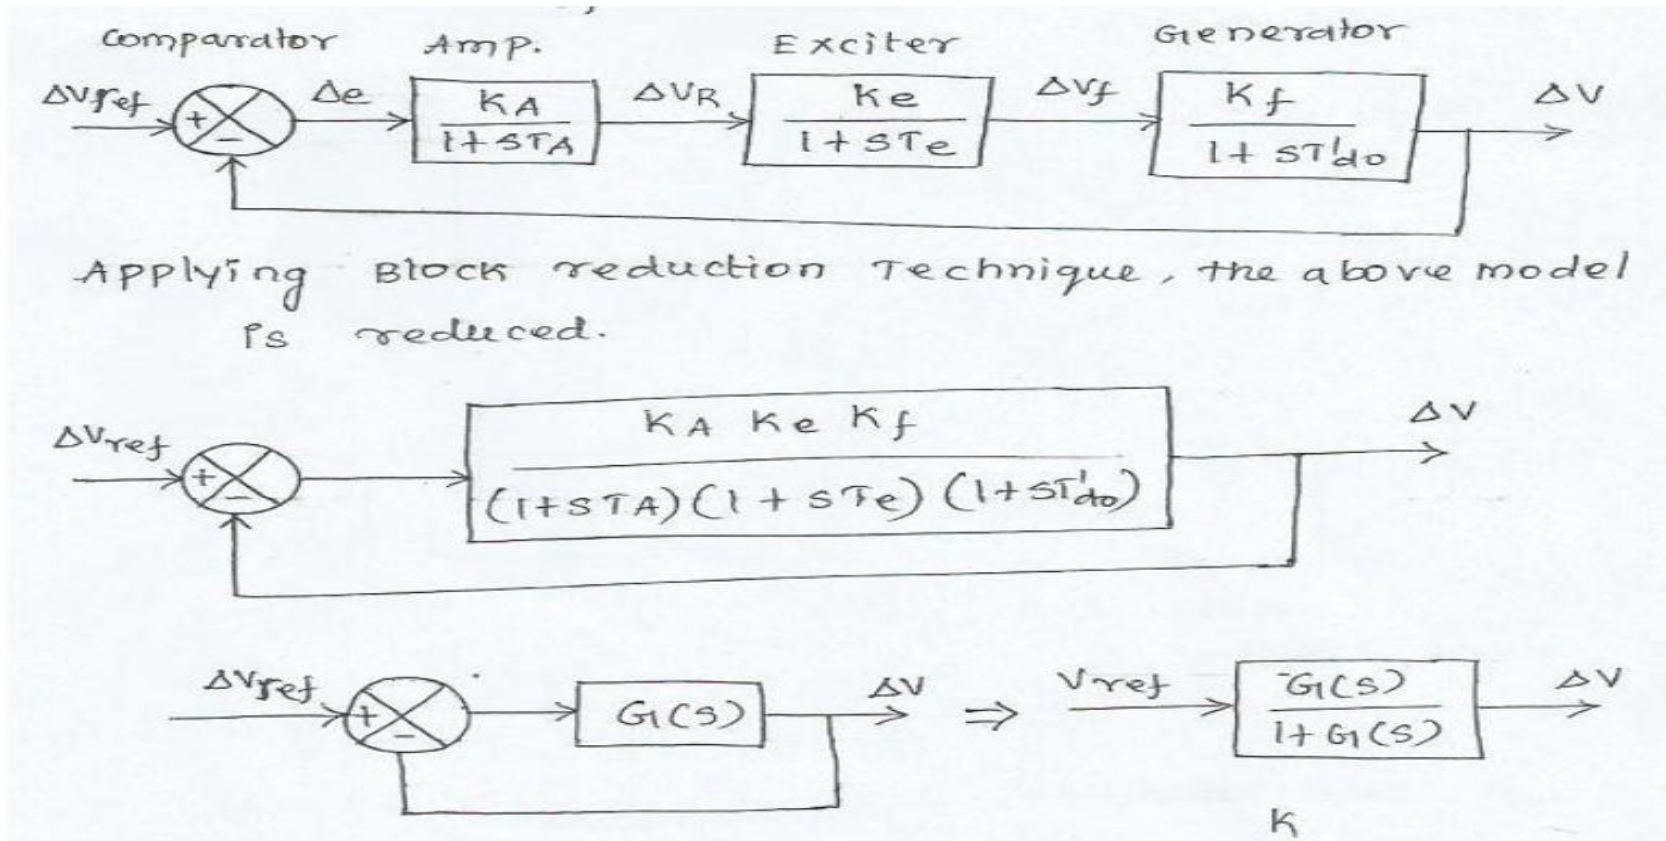 Comparator Amp. Exciter Generator
ΔVref + − Δe KA / 1+STA ΔVR Ke / 1+STe ΔVf Kf / 1+ST'do ΔV
Applying Block reduction Technique, the above model
is reduced.
ΔVref + − KA Ke Kf / (1+STA)(1+STe)(1+ST'do) ΔV
ΔVref + − G(S) ΔV ⇒ Vref G(S) / 1+G(S) ΔV
K